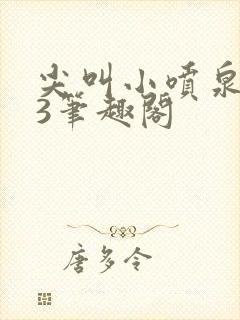 尖叫小喷泉
3笔趣阁
唐多令